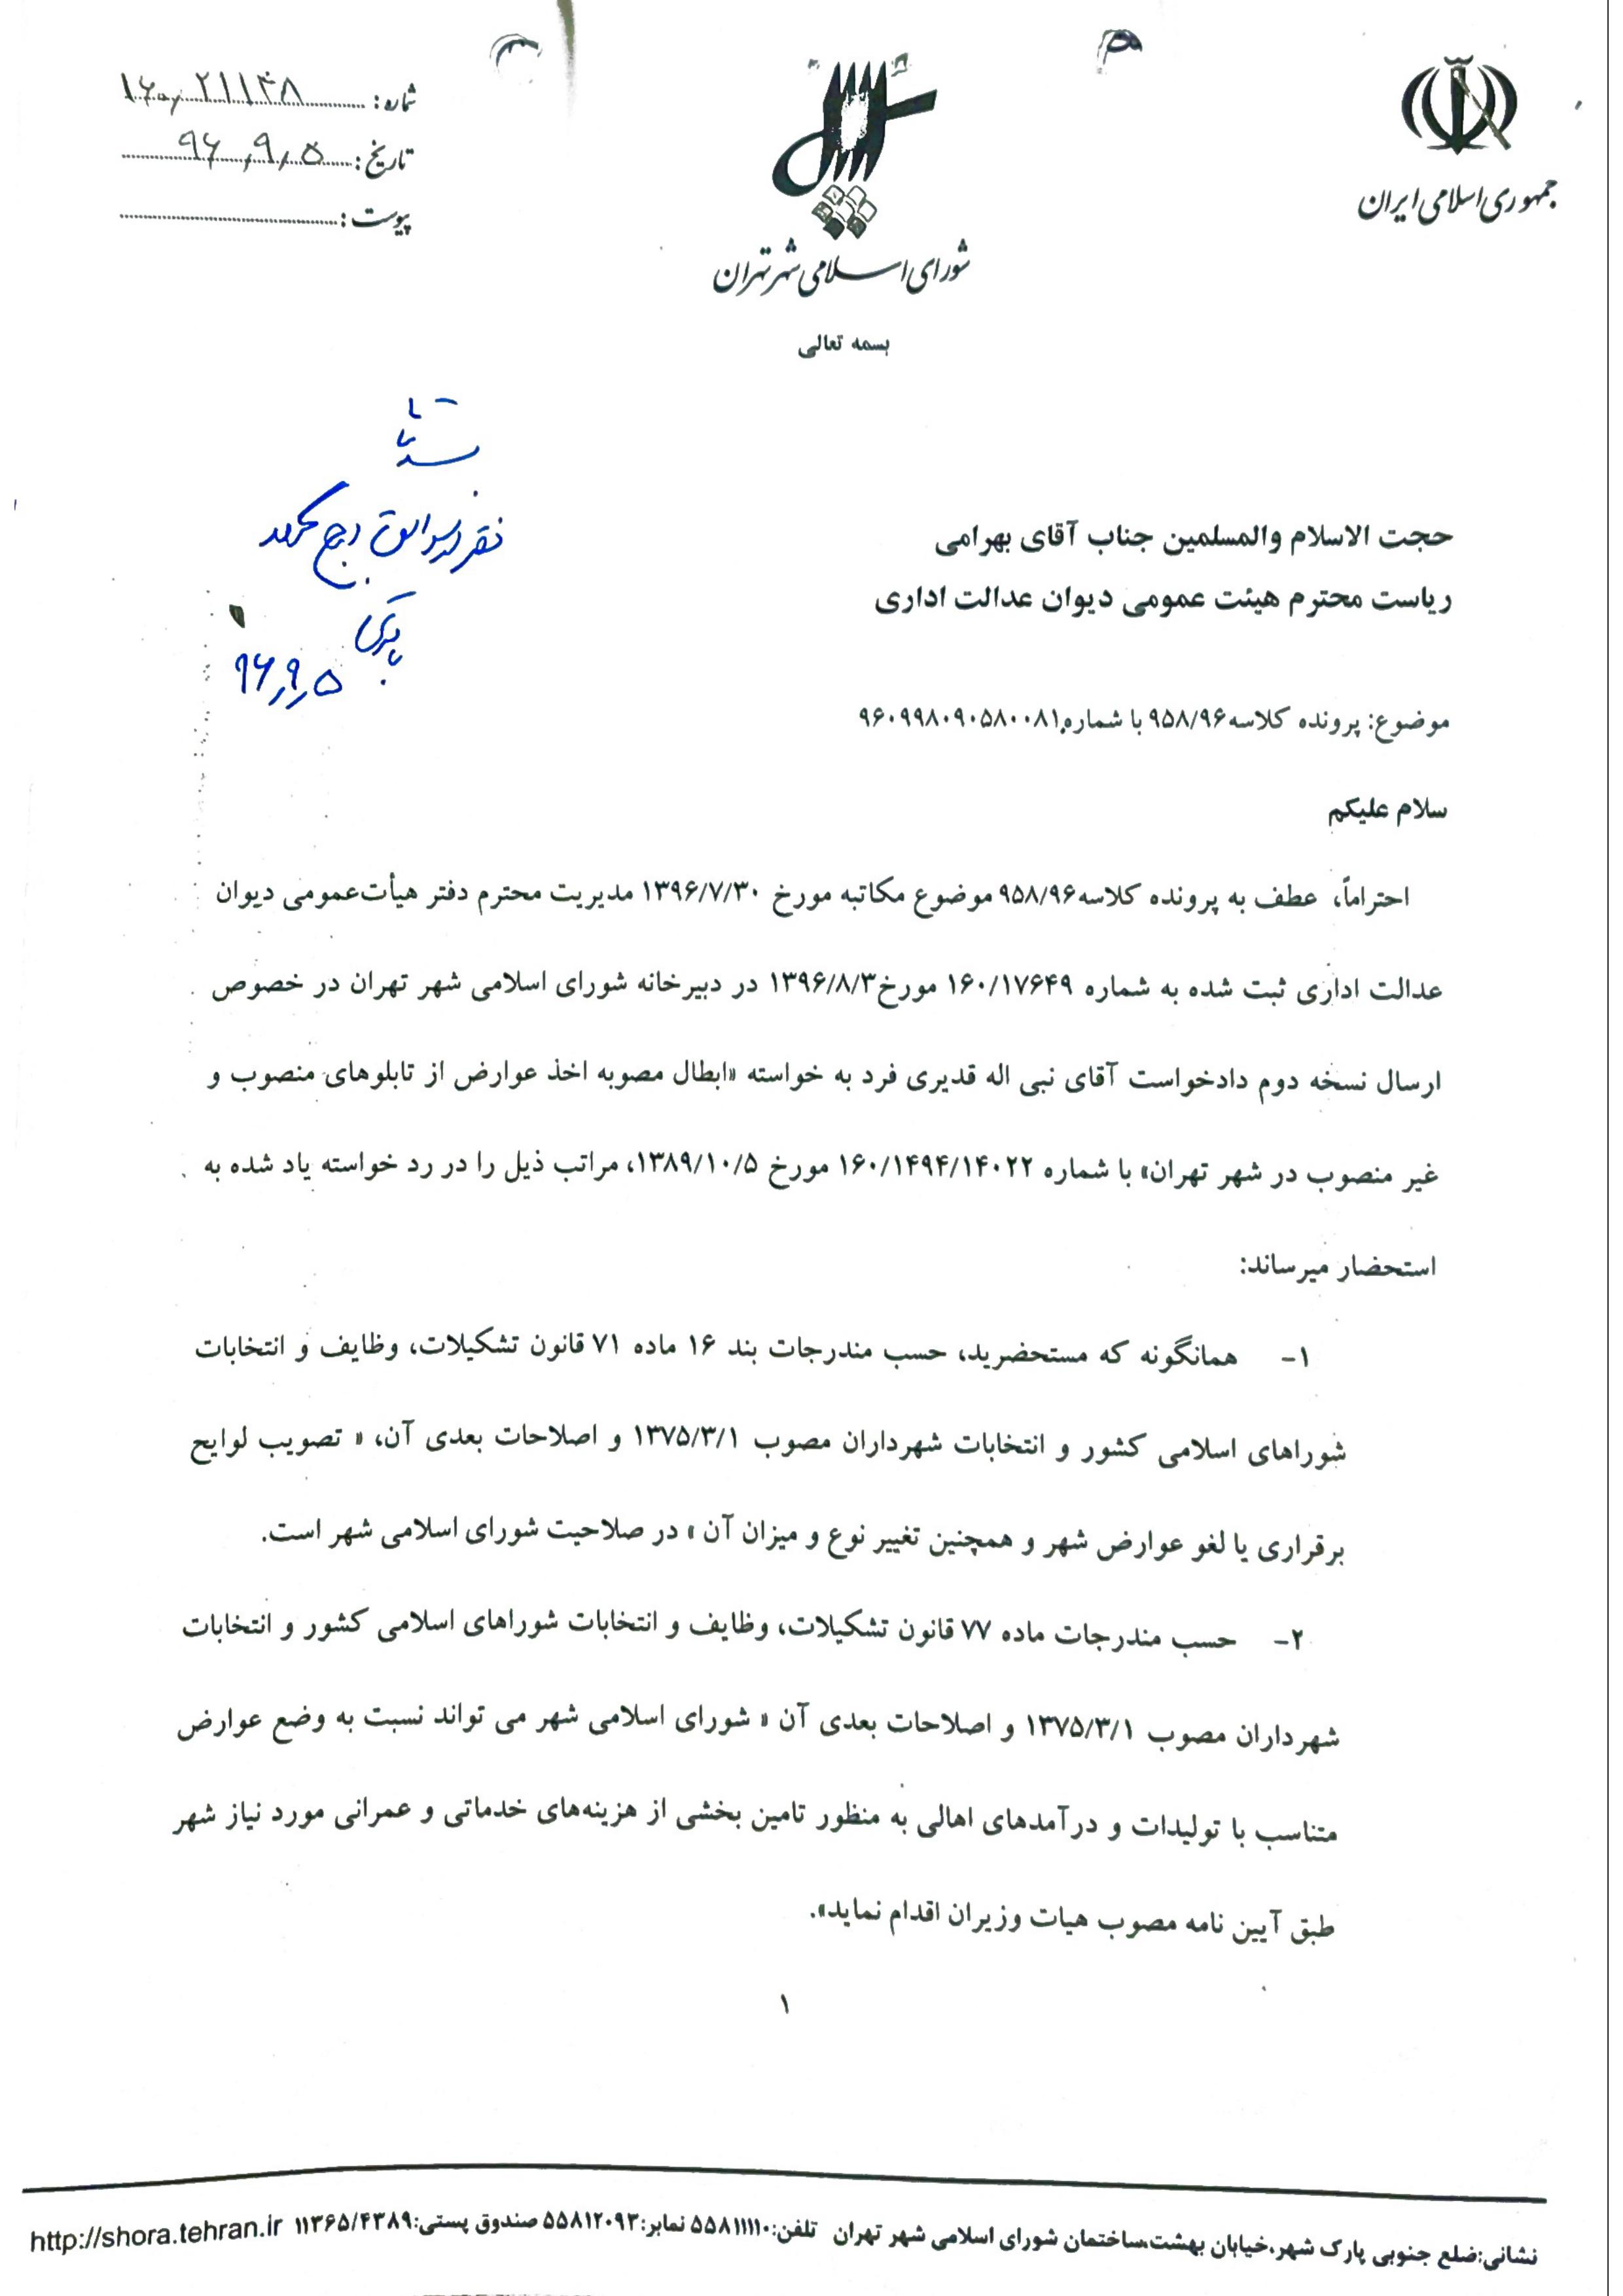 جمهوری اسلامی ایران
شورای اسلامی شهر تهران
شماره: ۱۶۰/۲۱۱۴۸
تاریخ: ۹۶/۹/۵
پیوست:
بسمه تعالی
۹۶/۹/۵
حجت الاسلام والمسلمین جناب آقای بهرامی
ریاست محترم هیئت عمومی دیوان عدالت اداری
موضوع: پرونده کلاسه ۹۵۸/۹۶ با شماره ۹۶۰۹۹۸۰۹۰۵۸۰۰۸۱
سلام علیکم
احتراماً، عطف به پرونده کلاسه ۹۵۸/۹۶ موضوع مکاتبه مورخ ۱۳۹۶/۷/۳۰ مدیریت محترم دفتر هیأت‌عمومی دیوان
عدالت اداری ثبت شده به شماره ۱۶۰/۱۷۶۴۹ مورخ ۱۳۹۶/۸/۳ در دبیرخانه شورای اسلامی شهر تهران در خصوص
ارسال نسخه دوم دادخواست آقای نبی اله قدیری فرد به خواسته «ابطال مصوبه اخذ عوارض از تابلوهای منصوب و
غیر منصوب در شهر تهران» با شماره ۱۶۰/۱۴۹۴/۱۴۰۲۲ مورخ ۱۳۸۹/۱۰/۵، مراتب ذیل را در رد خواسته یاد شده به
استحضار میرساند:
۱- همانگونه که مستحضرید، حسب مندرجات بند ۱۶ ماده ۷۱ قانون تشکیلات، وظایف و انتخابات
شوراهای اسلامی کشور و انتخابات شهرداران مصوب ۱۳۷۵/۳/۱ و اصلاحات بعدی آن، « تصویب لوایح
برقراری یا لغو عوارض شهر و همچنین تغییر نوع و میزان آن » در صلاحیت شورای اسلامی شهر است.
۲- حسب مندرجات ماده ۷۷ قانون تشکیلات، وظایف و انتخابات شوراهای اسلامی کشور و انتخابات
شهرداران مصوب ۱۳۷۵/۳/۱ و اصلاحات بعدی آن « شورای اسلامی شهر می تواند نسبت به وضع عوارض
متناسب با تولیدات و درآمدهای اهالی به منظور تامین بخشی از هزینه‌های خدماتی و عمرانی مورد نیاز شهر
طبق آیین نامه مصوب هیات وزیران اقدام نماید».
۱
نشانی:ضلع جنوبی پارک شهر،خیابان بهشت،ساختمان شورای اسلامی شهر تهران تلفن:۵۵۸۱۱۱۱۰ نمابر:۵۵۸۱۲۰۹۳ صندوق پستی:۱۱۳۶۵/۴۳۸۹ http://shora.tehran.ir